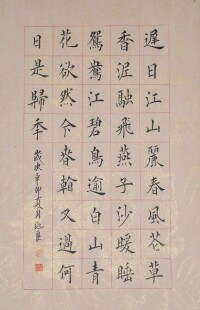 遲日江山麗春風花草
香泥融飛燕子沙暖睡
鴛鴦江碧鳥逾白山青
花欲然今春看又過何
日是歸秊
歲次辛卯夏月